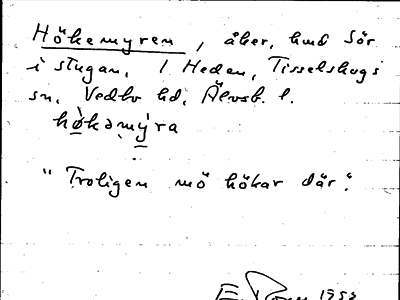 Hökemyren, åker, hmd Sör
i stugan, 1 Heden, Tisselskogs
sn, Vedbo hd, Älvsb. l.
hökəmỳra
"Troligen mö hökar där".
1953